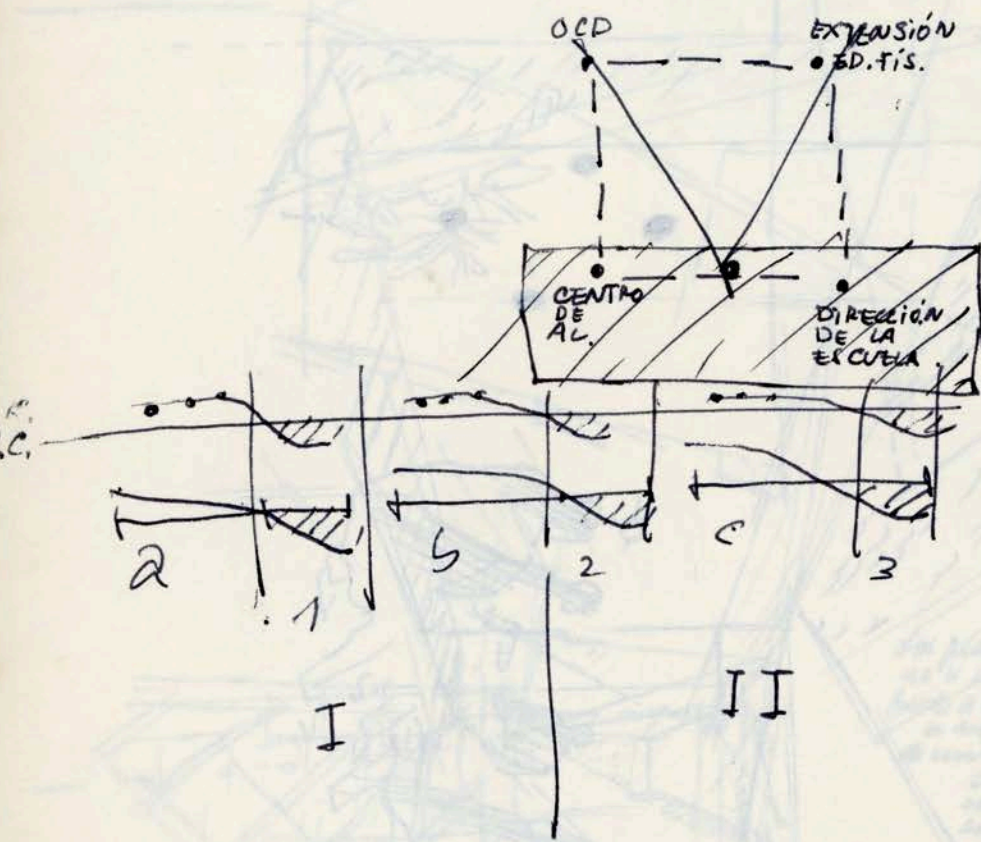 OCD
EXTENSIÓN
ED. FÍS.
CENTRO
DE
AL.
DIRECCIÓN
DE LA
ESCUELA
C.
a
1
b
2
c
3
I
II